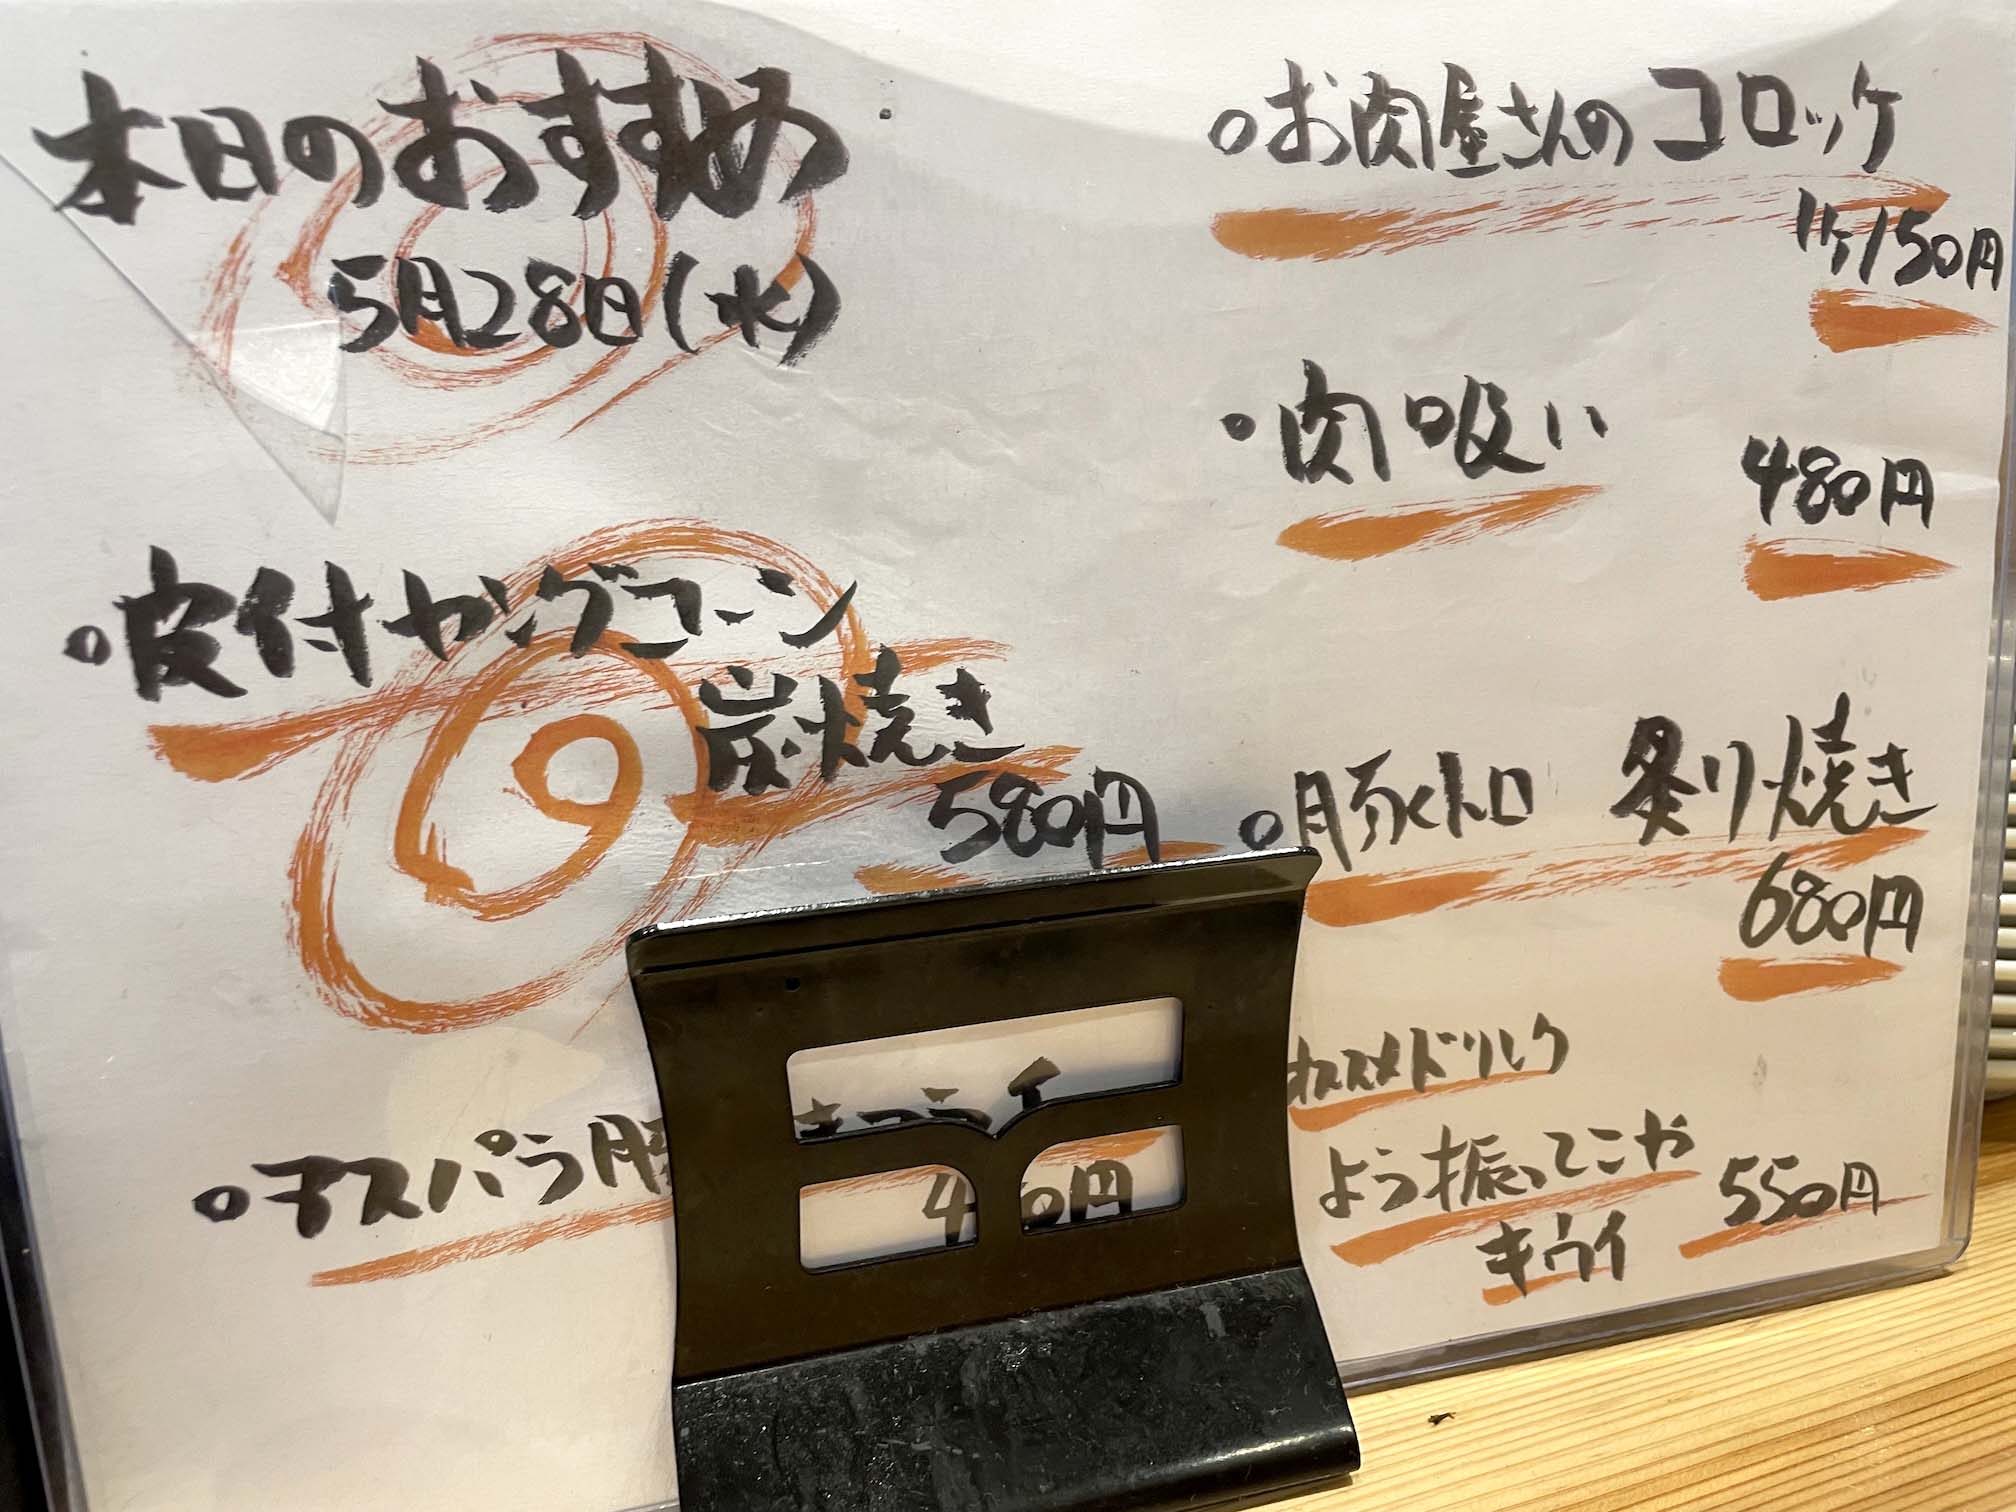 本日のおすすめ
5月28日(水)
○皮付ヤングコーン
炭焼き
580円
○アスパラ豚
○お肉屋さんのコロッケ
1ヶ150円
○肉吸い
480円
○豚トロ 炙り焼き
680円
オススメドリンク
よう振ってこや
キウイ
550円